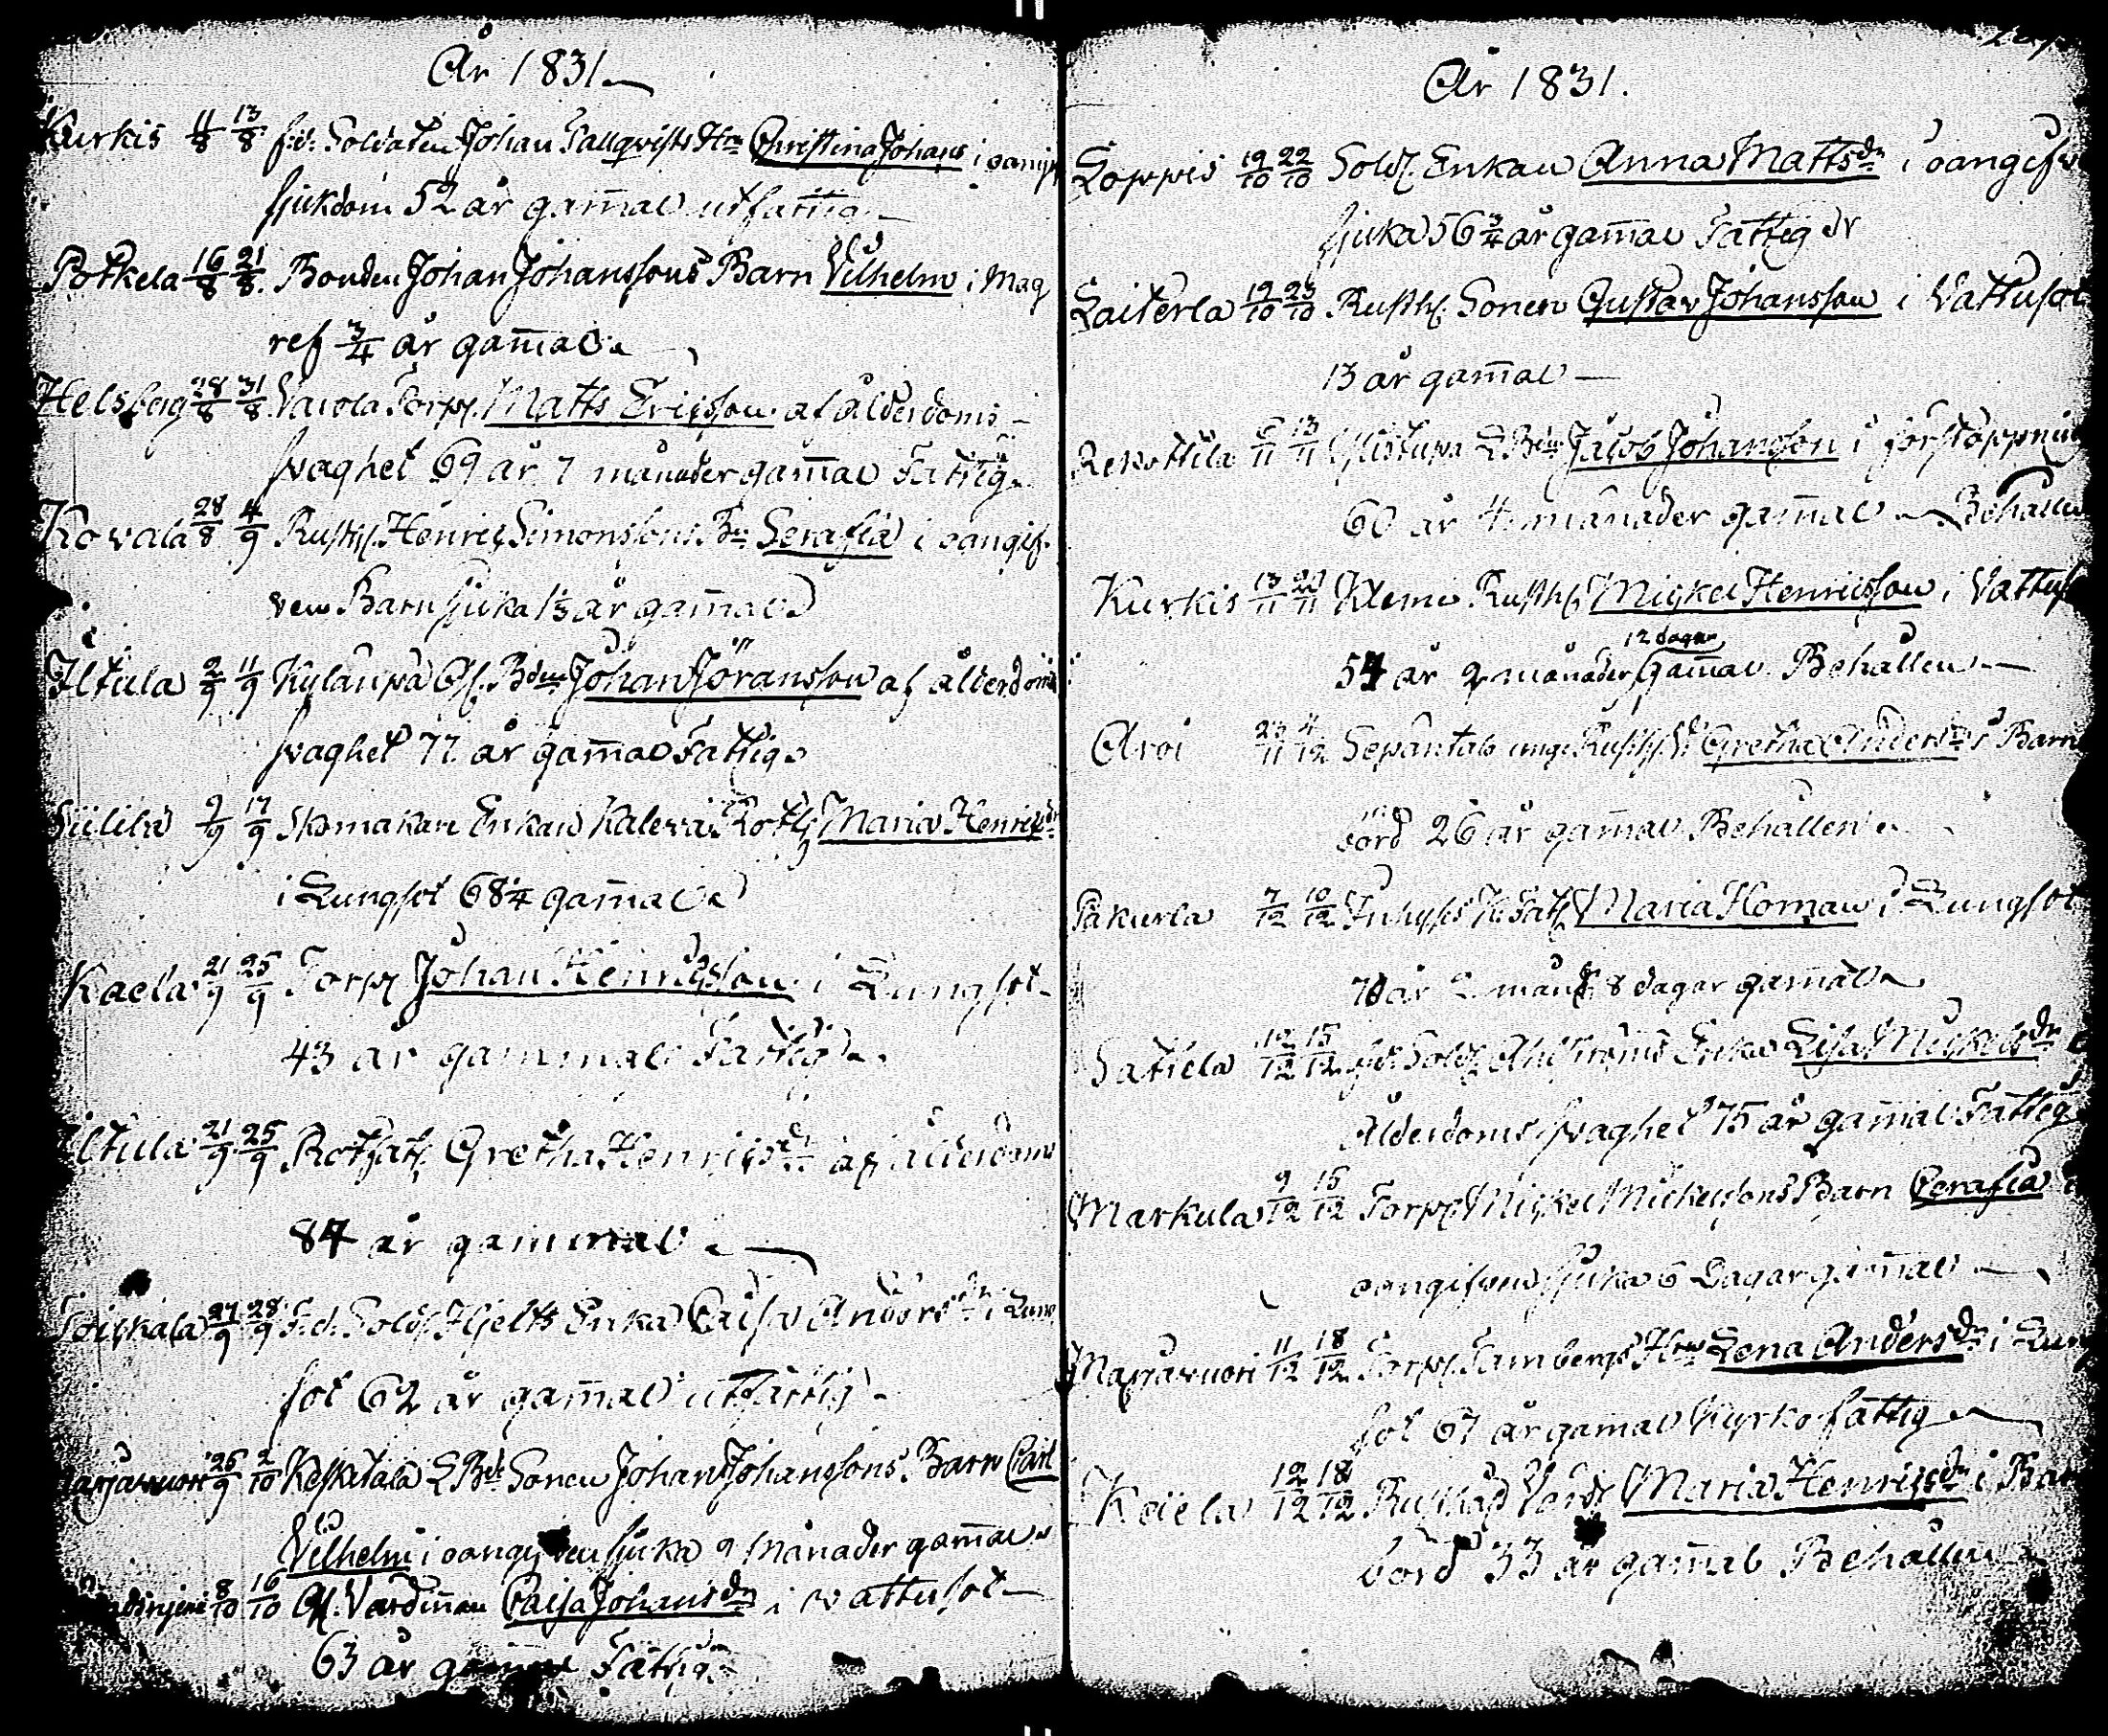 År 1831.
Kurkis 11/8 13/8 f:d: Soldaten Johan Tallqvists Hu Christina Johans i oangif
sjukdom 52 år gam̄al utfattig
Potkela 16/8 21/8 Bonden Johan Johanssons Barn Vilhelm i Mag
ref 3/4 år gam̄al
Helsberg 28/8 31/8 Torp. Matts Ericsson af ålderdoms
svaghet 69 år 7 månader gam̄al Fattig
Kovala 28/8 4/9 Rusth. Henric Simonssons Bn Serafia i oangif
ven Barnsjuka 1 1/3 år gam̄al
Iltula 2/9 11/9 Kylänpä Af. Bden Johan Jöransson af ålderdoms
svaghet 77 år gam̄al Fattig
9/9 17/9 Skomakare Enkan Maria Henrics
i Lungsot 68 1/4 gam̄al
Kaela 21/9 25/9 Torp Johan Henricsson i Lungsot
43 år gammal Fattig
Iltula 21/9 25/9 Rothjat. Gretha Henrics dr af ålderdoms
84 år gammal
27/9 28/9 F.d. Sold. Hjelts Enka Caisa Anders dr i Lung
sot 62 år gam̄al utfattig
25/9 2/10 Keskitalo L Bde Sonen Johan Johanssons Barn Carl
Vilhelm i oangifven sjuka 9 månader gam̄al
8/10 16/10 Af. Värdinnan Caisa Johans dr i vattusot
63 år Fattig
År 1831.
Loppis 19/10 22/10 Sold. Enkan Anna Matts dr i oangifven
sjuka 56 3/4 år gam̄al Fattig
Laiterla 19/10 23/10 Rusth. Sonen Gustav Johansson i Vattusot
13 år gam̄al
Rekottila 6/11 13/11 L Bden Jacob Johansson i förstoppning
60 år 4 månader gam̄al Behållen
Kurkis 13/11 20/11 Klemi Rusth. Mickel Henricsson i Vattus
12 dagar
54 år 2 månader gam̄al Behållen
Aroi 23/11 4/12 Sepäntalo unge Gretha Anders dr i Barn
börd 26 år gam̄al Behållen
Pakurla 7/12 10/12 Inhyses Maria Homan i Lungsot
70 år 2 mån 8 dagar gam̄al
Satiela 10/12 15/12 f:d: Sold Ahlströms Enka Lisa Mickels dr
Ålderdoms svaghet 75 år gam̄al Fattig
Markula 9/12 15/12 Torp Mickel Mickelsons Barn Cerafia
oangifven sjuka 6 Dagar gam̄al
Marjavuori 11/12 18/12 Torp. Tambergs Hru Lena Anders dr i Lung
sot 67 år gamal Kyrkofattig
Koiela 12/12 18/12 Rusthåll Värd. Maria Henrics dr i Barn
börd 33 år gam̄al Behållen